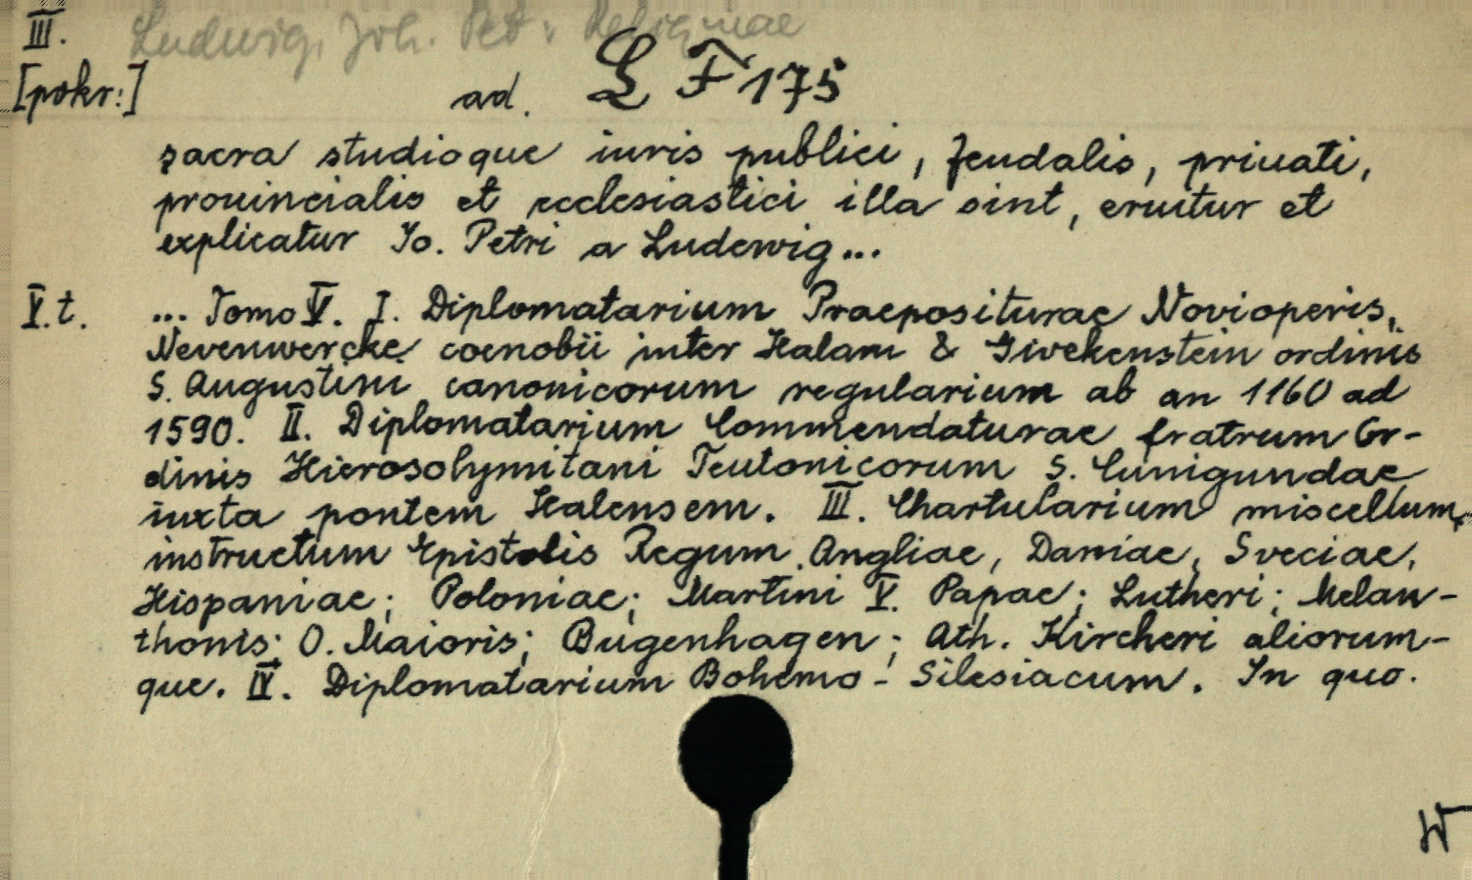 III. Ludwig, Joh. Pet: Reliquiae
[pokr:] ad. L F 175
sacra studioque iuris publici, feudalis, priuati,
prouincialis et ecclesiastici illa sint, eruitur et
explicatur Io. Petri a Ludewig...
V.t. ... Tomo V. I. Diplomatarium Praepositurae Novioperis,
Nevenwercke coenobii inter Halam & Givekenstein ordinis
S. Augustini canonicorum regularium ab an 1160 ad
1590. II. Diplomatarium Commendaturae fratrum Or-
dinis Hierosolymitani Teutonicorum S. Cunigundae
iuxta pontem Halensem. III. Chartularium miscellum,
instructum Epistolis Regum Angliae, Daniae, Sveciae,
Hispaniae; Poloniae; Martini V. Papae; Lutheri; Melan-
thonis; O. Maioris; Bugenhagen; Ath. Kircheri aliorum-
que. IV. Diplomatarium Bohemo-Silesiacum. In quo.
W